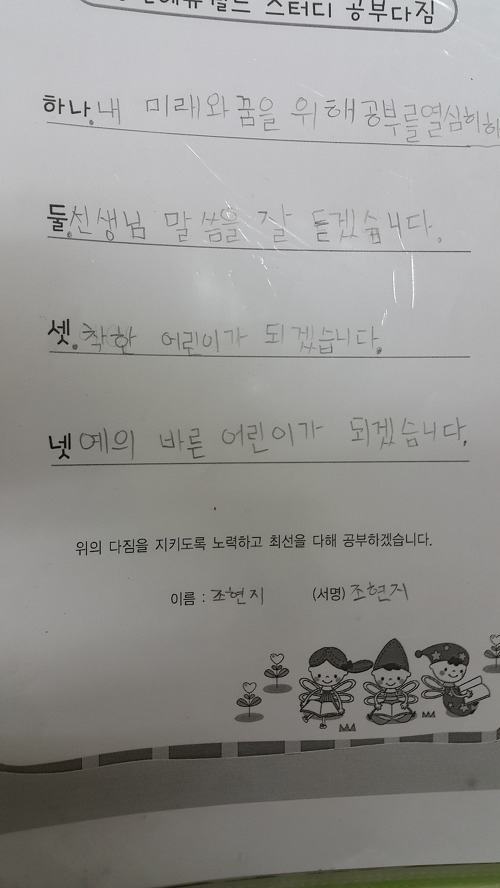 스터디 공부다짐
하나. 내 미래와 꿈을 위해 공부를 열심히
둘. 선생님 말씀을 잘 듣겠습니다.
셋. 착한 어린이가 되겠습니다.
넷 예의 바른 어린이가 되겠습니다.
위의 다짐을 지키도록 노력하고 최선을 다해 공부하겠습니다.
이름 : 조현지 (서명) 조현지